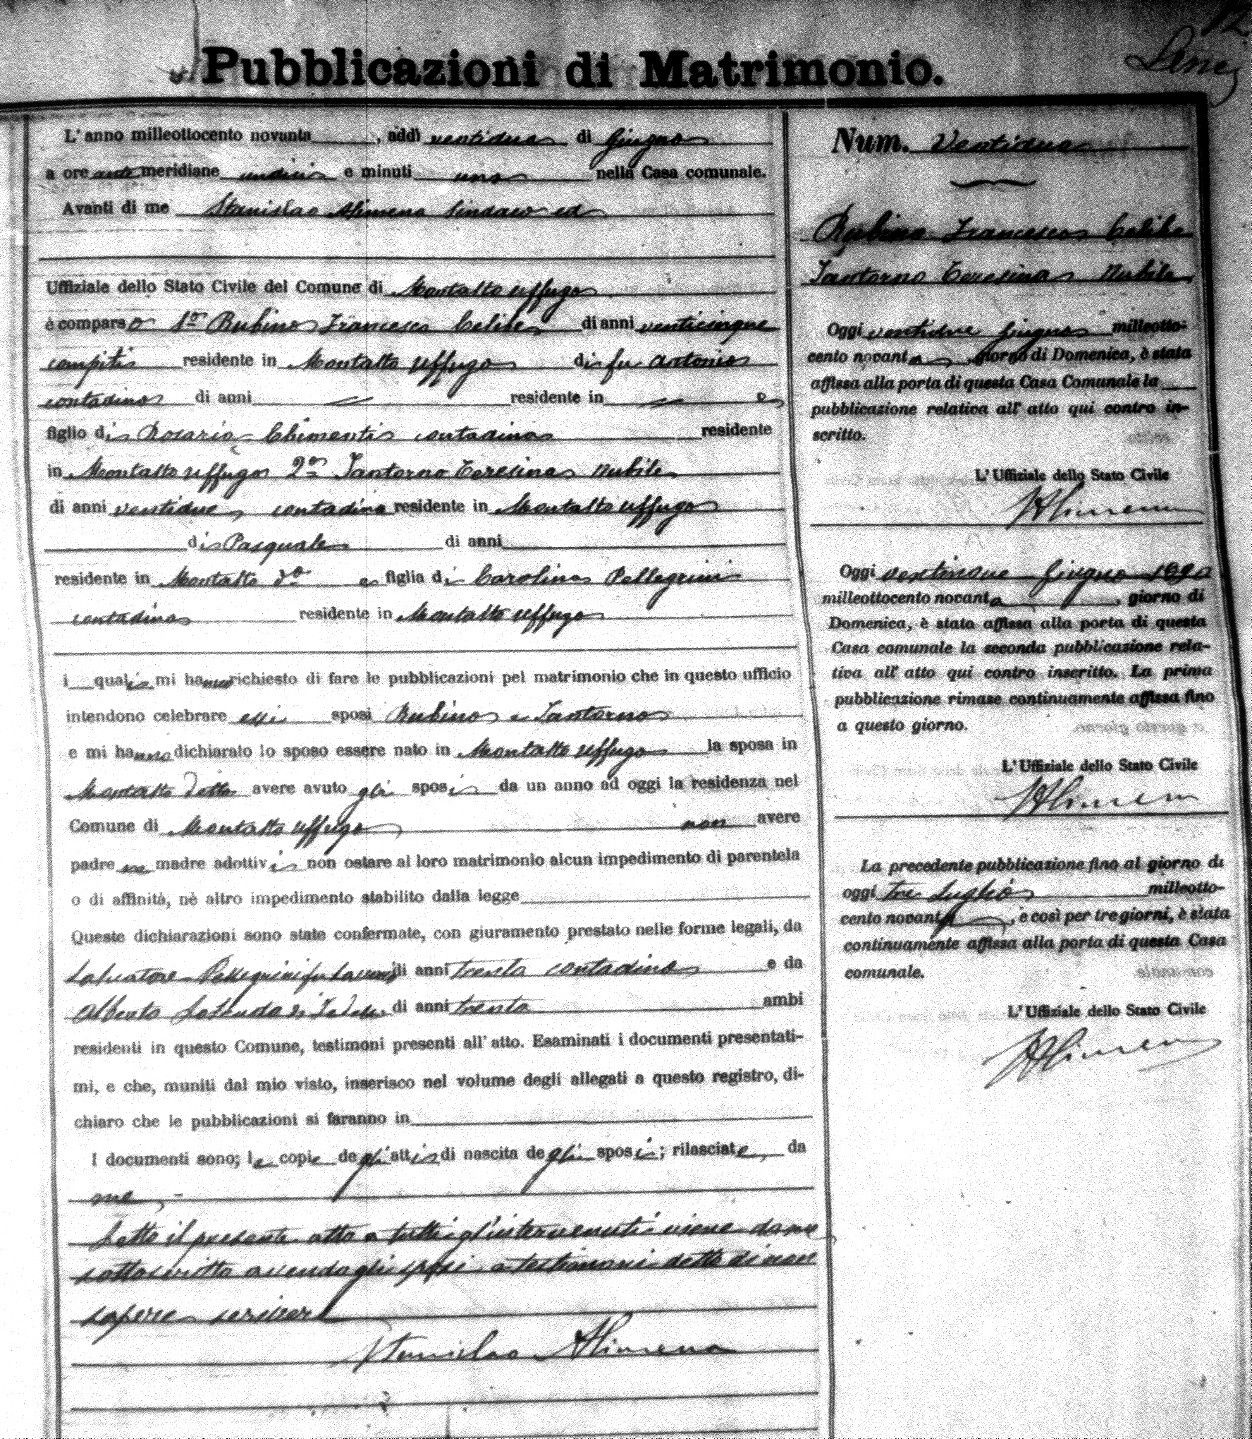 Pubblicazioni di Matrimonio.
12
L'anno milleottocento novanta , addì ventidue di Giugno
a ore ante meridiane undici e minuti uno nella Casa comunale.
Avanti di me Stanislao Alimena Sindaco ed
Uffiziale dello Stato Civile del Comune di Montalto Uffugo
è comparso 1º Rubino Francesco Celibe di anni venticinque
compiti residente in Montalto Uffugo di fu Antonio
contadino di anni residente in e
figlio di Rosaria Chimenti contadina residente
in Montalto Uffugo 2ª Santorno Teresina nubile
di anni ventidue contadina residente in Montalto Uffugo
di Pasquale di anni
residente in Montalto do e figlia di Carolina Pellegrini
contadina residente in Montalto Uffugo
i quali mi hanno richiesto di fare le pubblicazioni pel matrimonio che in questo ufficio
intendono celebrare essi sposi Rubino e Santorno
e mi hanno dichiarato lo sposo essere nato in Montalto Uffugo la sposa in
Montalto detto avere avuto gli sposi da un anno ad oggi la residenza nel
Comune di Montalto Uffugo non avere
padre ne madre adottivi non ostare al loro matrimonio alcun impedimento di parentela
o di affinità, nè altro impedimento stabilito dalla legge
Queste dichiarazioni sono state confermate, con giuramento prestato nelle forme legali, da
Salvatore Pellegrini fu di anni trenta contadino e da
Alberto di di anni trenta ambi
residenti in questo Comune, testimoni presenti all' atto. Esaminati i documenti presentati-
mi, e che, muniti dal mio visto, inserisco nel volume degli allegati a questo registro, di-
chiaro che le pubblicazioni si faranno in
I documenti sono; le copie degli atti di nascita degli sposi; rilasciate da
me
Letto il presente atto a tutti gl'intervenuti viene da me
sottoscritto avendo gli sposi e testimoni detto di non
sapere scrivere
Stanislao Alimena
Num. Ventidue
Rubino Francesco Celibe
Santorno Teresina Nubile
Oggi ventidue Giugno milleotto-
cento novanta , giorno di Domenica, è stata
affissa alla porta di questa Casa Comunale la
pubblicazione relativa all' atto qui contro in-
scritto.
L' Uffiziale dello Stato Civile
SAlimena
Oggi ventinove Giugno 1890
milleottocento novanta , giorno di
Domenica, è stata affissa alla porta di questa
Casa comunale la seconda pubblicazione rela-
tiva all' atto qui contro inscritto. La prima
pubblicazione rimase continuamente affissa fino
a questo giorno.
L' Uffiziale dello Stato Civile
SAlimena
La precedente pubblicazione fino al giorno di
oggi tre Luglio milleotto-
cento novanta , e così per tre giorni, è stata
continuamente affissa alla porta di questa Casa
comunale.
L' Uffiziale dello Stato Civile
SAlimena